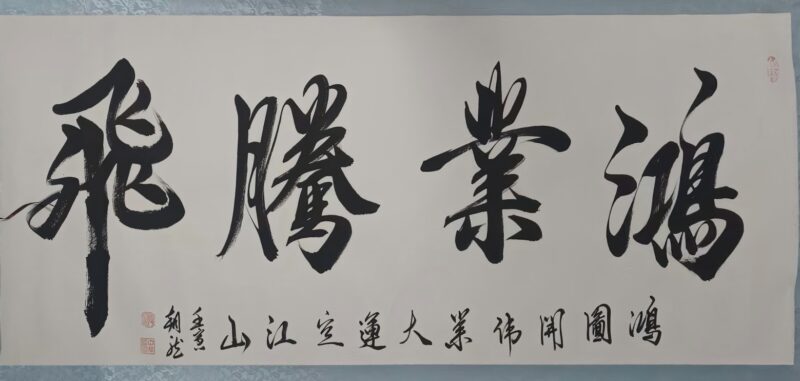 鴻業騰飛
鴻圖開伟業大運定江山
壬寅
朝龙